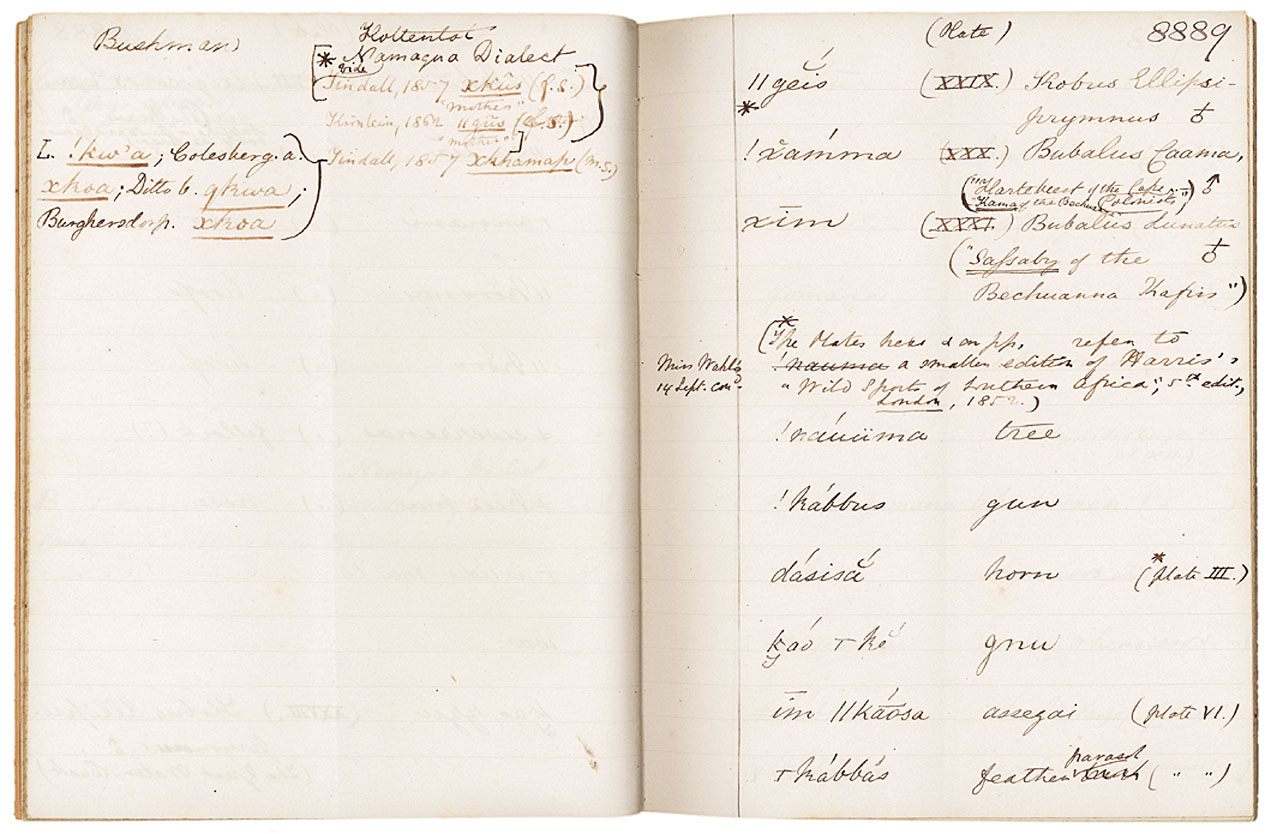 Bushman
Hottentot
* Namaqua Dialect.
vide
Tindall, 1857 xkũs (f.s.)
"mother"
1862 ‖gũs
"mother"
Tindall, 1857 xkhamap (m.s.)
L. !kw'a; Colesberg. a.
xkoa; Ditto b. qkwa;
Burghersdorp. xkoa
(Plate) 8889
‖gĕis (XXIX.) Kobus Ellipsi-
* prymnus ♁
!x̆ámma (XXX.) Bubalus Caama,
Hartebeest of the Cape
Colonists") ♂
xīm (XXXI.) Bubalus Lunatus
("Saſsaby of the ♁
Bechuanna Kafirs")
(*The Plates here & on pp. refer to
Miss Wahls !nauma a smaller edition of Harris's
14 Sept. "Wild Sports of Southern Africa", 5th edit.,
London, 1852.)
!náuüma tree
!kábbus gun
dásisă horn (*Plate III.)
káo ⊤kĕ gnu
īm ‖káŏsa assegai (Plate VI.)
⊤kábbăs feather parasol (" ")